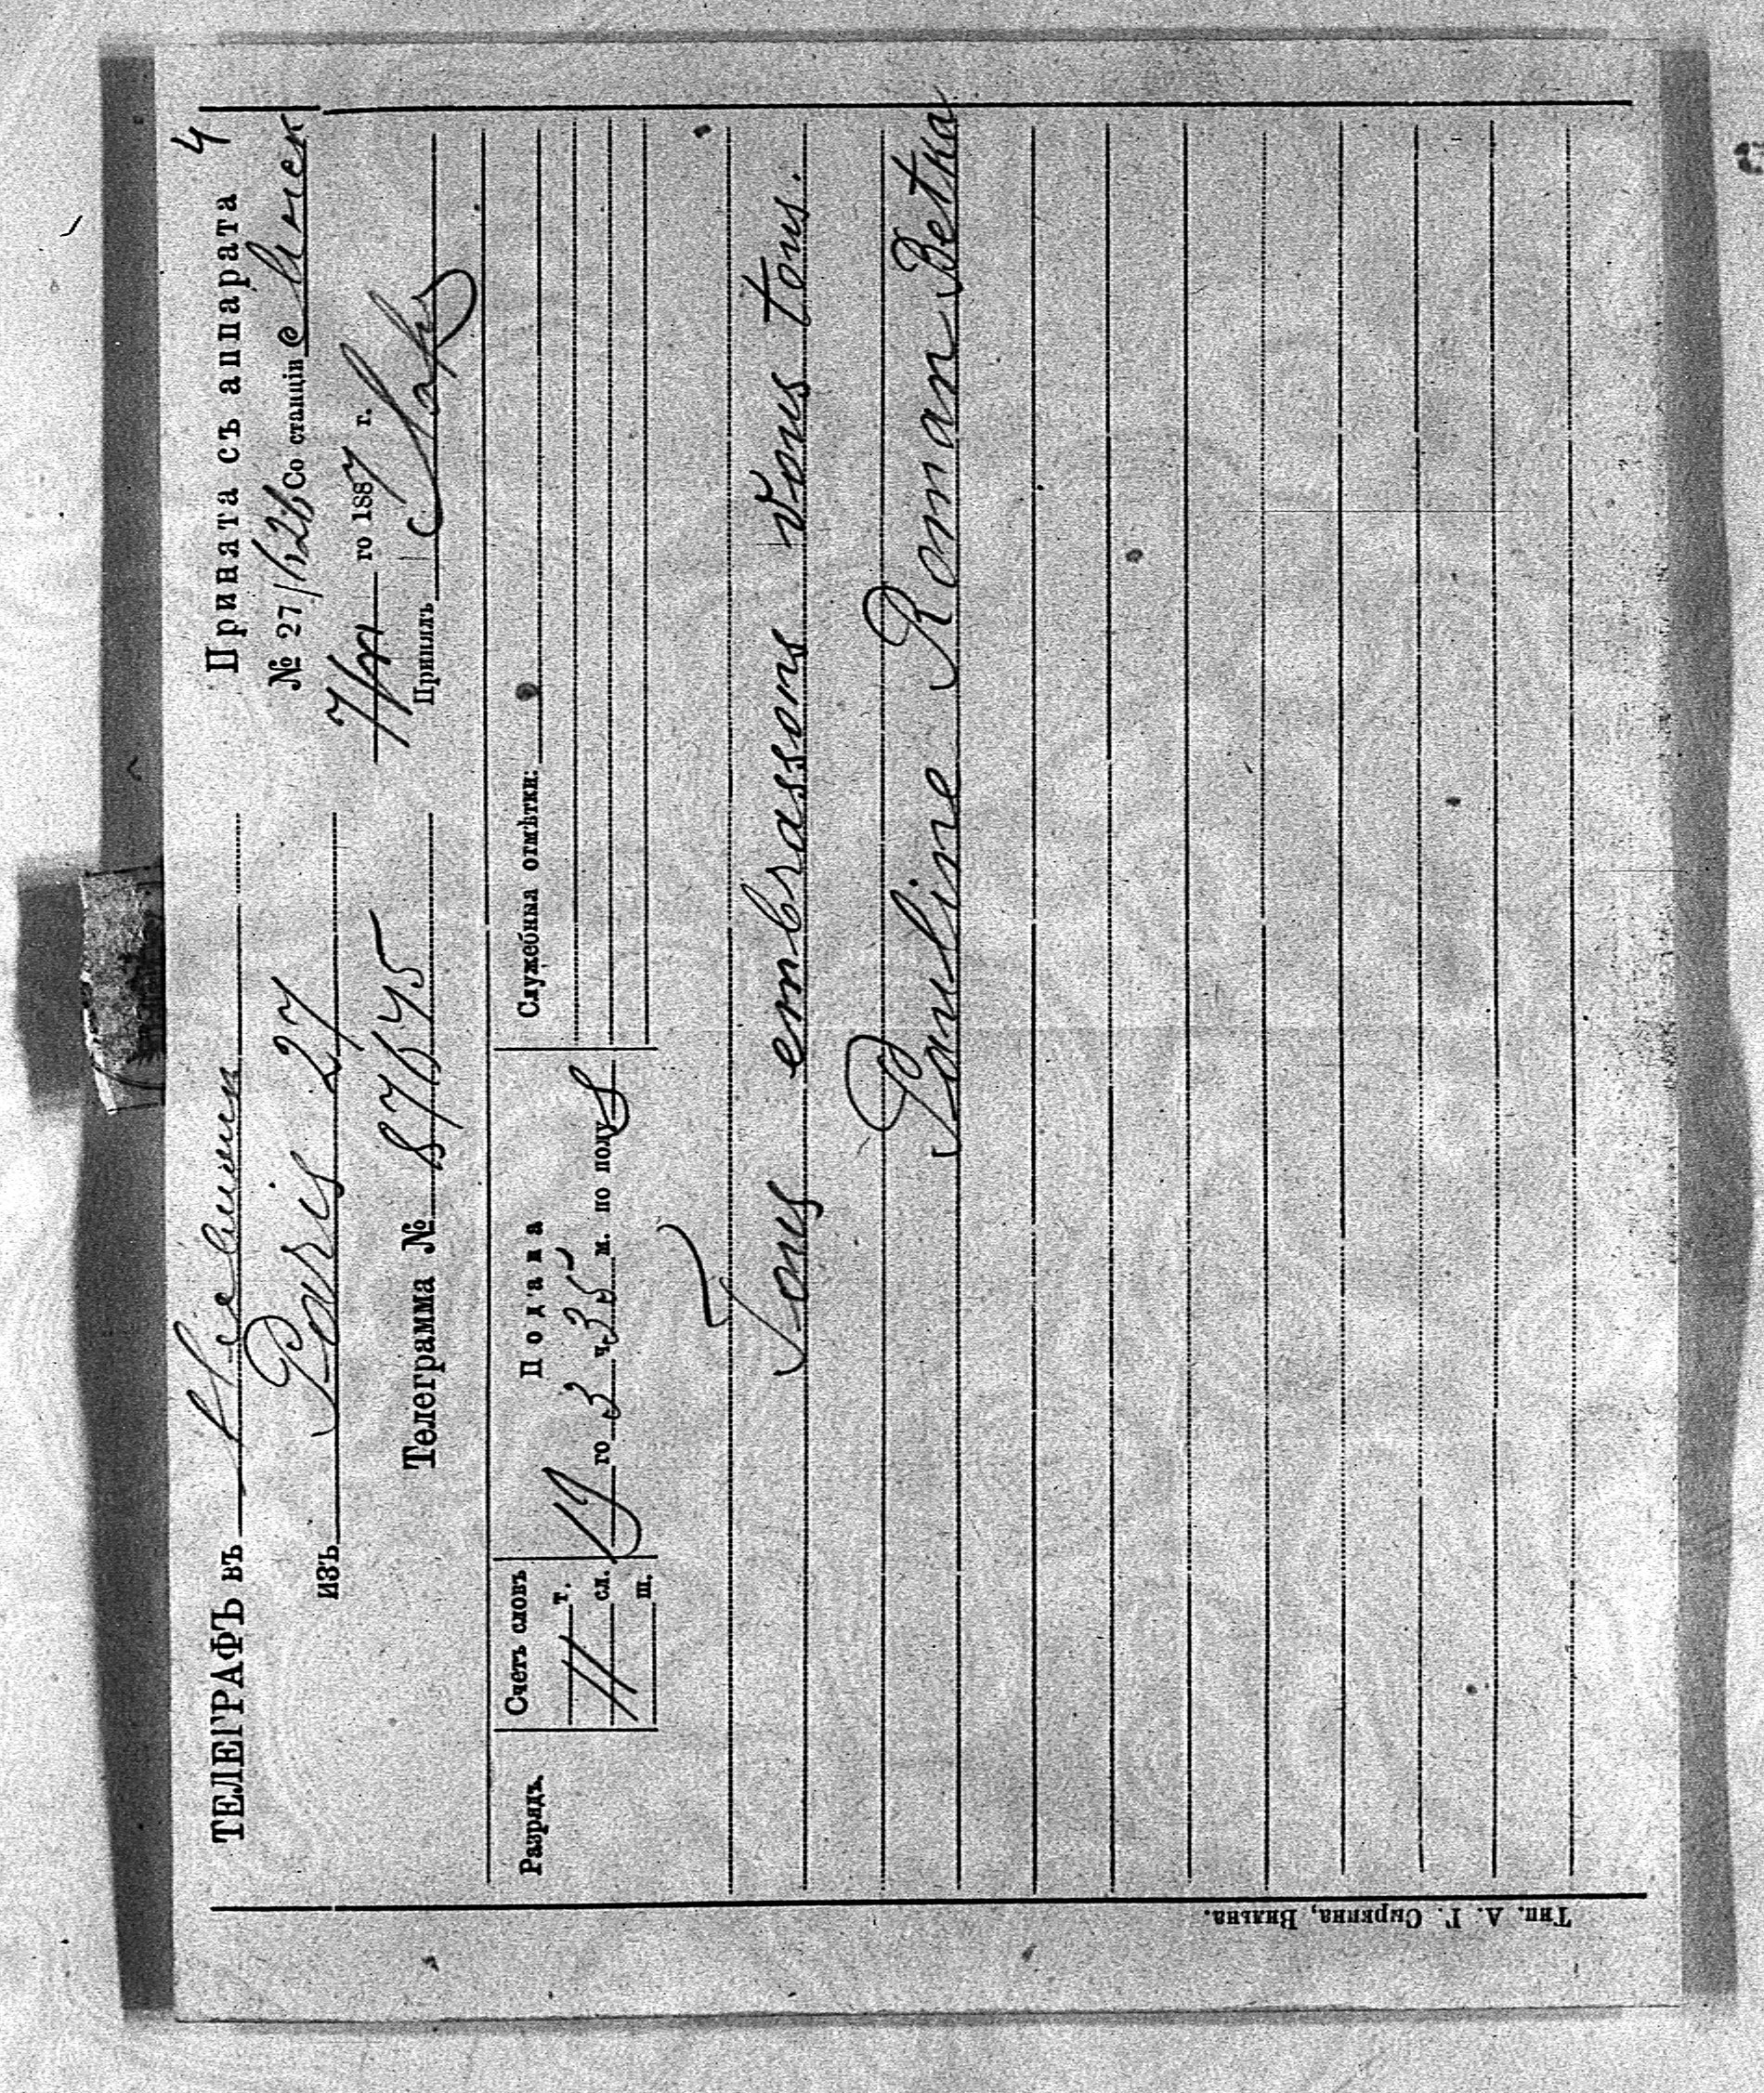 ТЕЛЕГРАФЪ въ Несвижъ
Принята съ аппарата 4
изъ Paris 27
№ 27/626 Со станціи Минск
го 1887 г.
Телеграмма № 87645
Принялъ
Разрядъ.
Счетъ словъ
Подана
Служебныя отмѣтки:
11 т. сл. ш.
19 го 3 ч. 35 м. по полу
Vous embrassons vous tous.
Pauline Roman Betka
Тип. А. Г. Сыркина, Вильна.